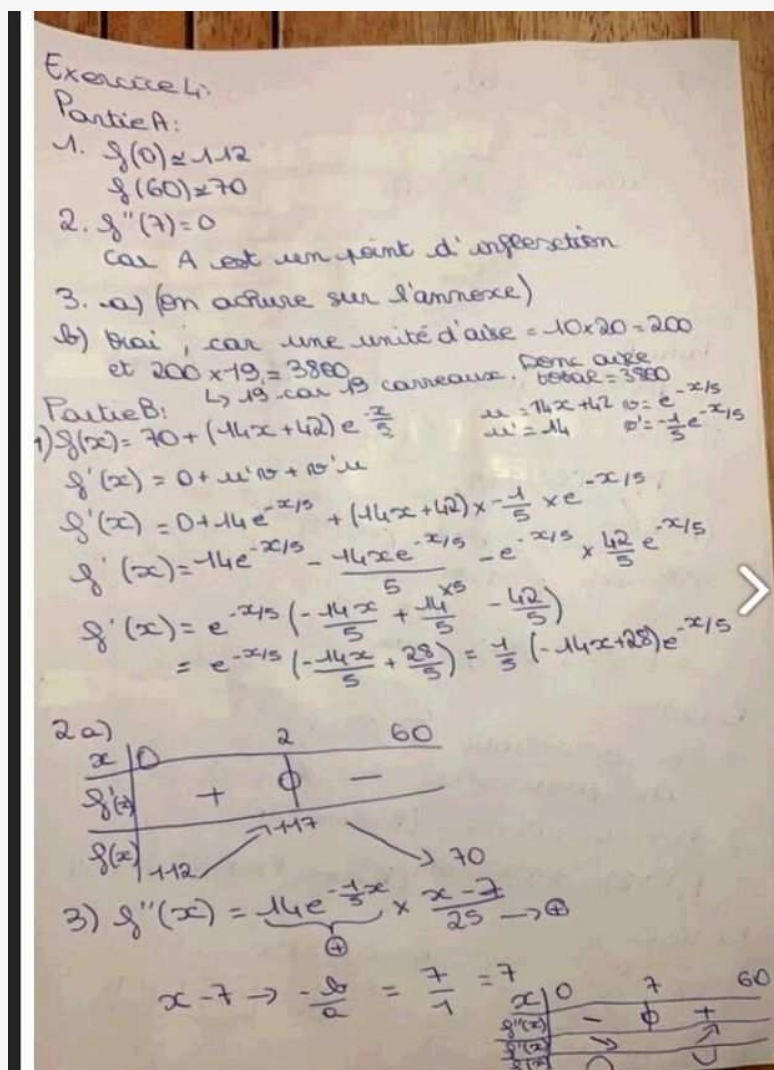 Exercice 4:
Partie A:
1. f(0) ≃ 112
f(60) ≃ 70
2. f''(7) = 0
car A est un point d'inflexction
3. a) (en sur l'annexe)
b) Vrai ; car une unité d'aise = 10x20 = 200
et 200 x 19 = 3800
↳ 19 car 19 carreaux. Donc aire total = 3800
Partie B:
1) f(x) = 70 + (14x + 42) e^-x/5
u = 14x + 42 v = e^-x/5
u' = 14 v' = -1/5 e^-x/5
f'(x) = 0 + u'v + v'u
f'(x) = 0 + 14e^-x/5 + (14x + 42) x -1/5 x e^-x/5
f'(x) = 14e^-x/5 - 14xe^-x/5 / 5 - e^-x/5 x 42/5 e^-x/5
f'(x) = e^-x/5 (-14x/5 + 14x5/5 - 42/5)
= e^-x/5 (-14x/5 + 28/5) = 1/5 (-14x + 28) e^-x/5
2a)
x 0 2 60
f'(x) + 0 -
f(x) 112 → 117 → 70
3) f''(x) = 14e^-1/5x x x - 7 / 25 → ⊕
⊕
x - 7 → -b/a = 7/1 = 7
x 0 7 60
f''(x) - 0 +
f'(x) ↘ ↗
f(x)